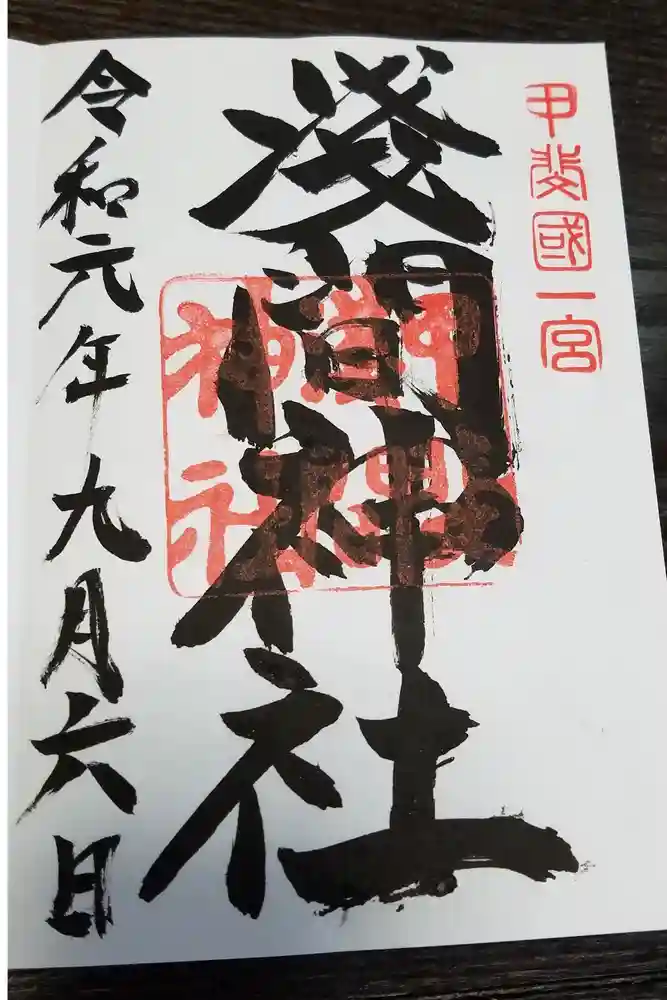 甲斐國一宮
淺間神社
令和元年九月六日